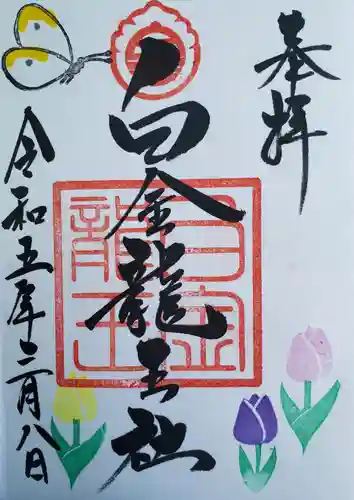 奉拝
白金龍王社
白金龍王
令和五年二月八日